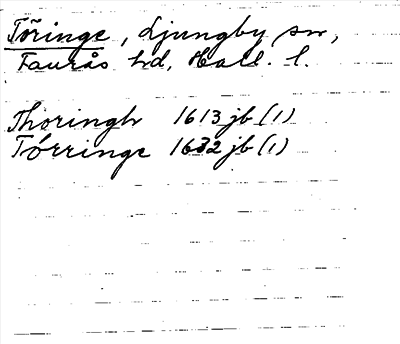 Töringe, Ljungby sn,
Faurås hd, Hall. l.
Thoringh 1613 jb (1)
Tórringe 1632 jb (1)